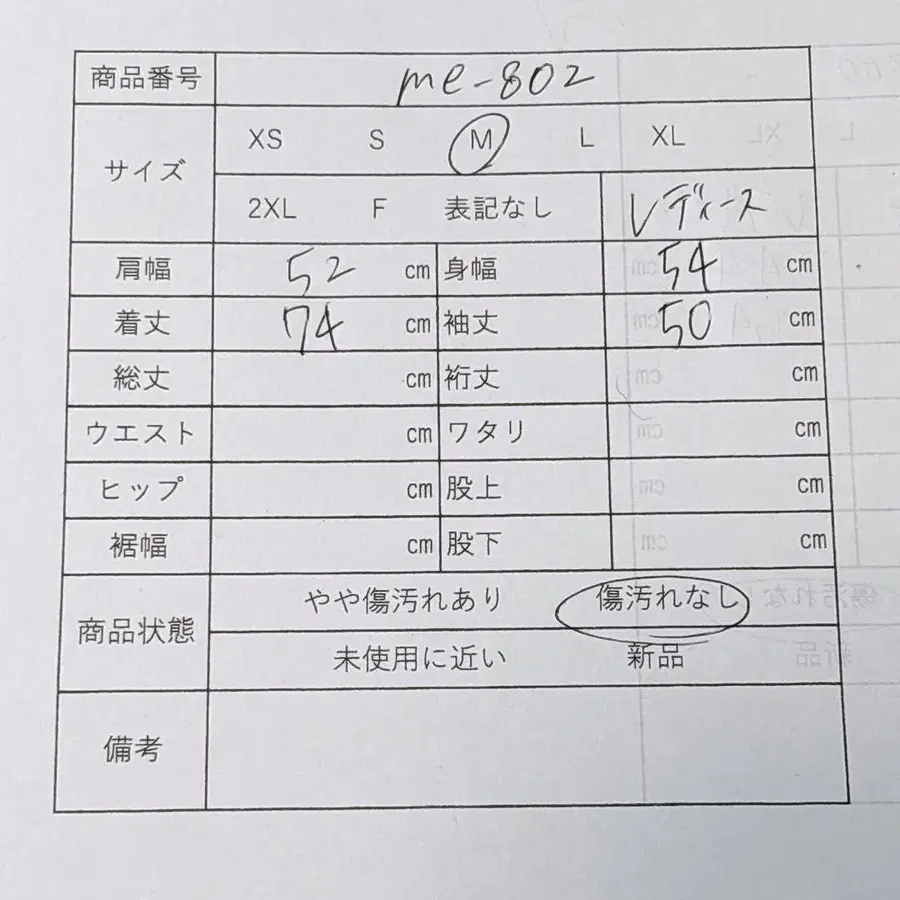 商品番号 me-802
サイズ XS S M L XL
2XL F 表記なし レディース
肩幅 52 cm 身幅 54 cm
着丈 74 cm 袖丈 50 cm
総丈 cm 裄丈 cm
ウエスト cm ワタリ cm
ヒップ cm 股上 cm
裾幅 cm 股下 cm
商品状態 やや傷汚れあり 傷汚れなし
未使用に近い 新品
備考